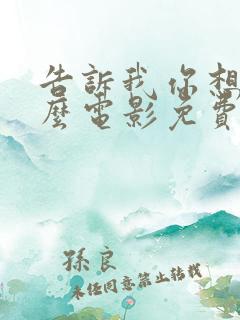 告訴我 你想
麼電影免費
孫良
未任同意禁止转载